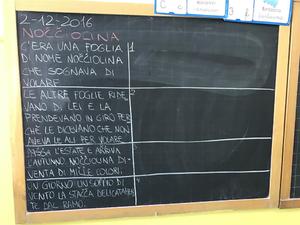 2-12-2016
NOCCIOLINA
C'ERA UNA FOGLIA
DI NOME NOCCIOLINA
CHE SOGNAVA DI
VOLARE
1
LE ALTRE FOGLIE RIDE
VANO DI LEI E LA
PRENDEVANO IN GIRO PER
CHÈ LE DICEVANO CHE NON
AVEVA LE ALI PER VOLARE
2
PASSA L'ESTATE E ARRIVA
L'AUTUNNO NOCCIOLINA DI-
VENTA DI MILLE COLORI.
3
UN GIORNO UN SOFFIO DI
VENTO LA STACCA DELICATAMEN
TE DAL RAMO.
4